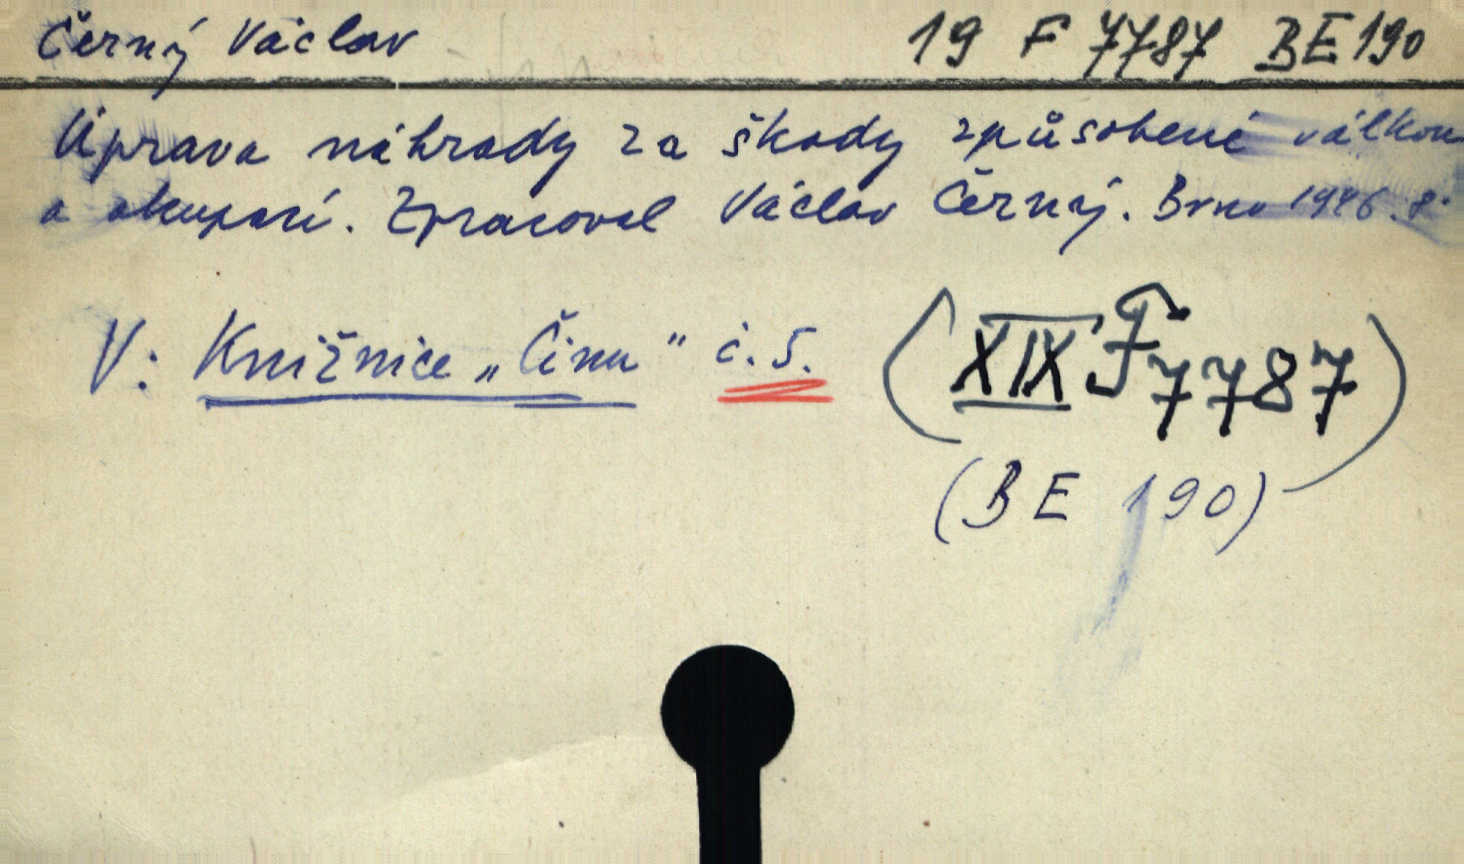 Černý Václav 19 F 7787 BE 190
Úprava náhrady za škody způsobené válkou
a okupací. Zpracoval Václav Černý. Brno 1946. 8°
V: Knižnice „Činu" č. 5. (XIX F 7787)
(BE 190)